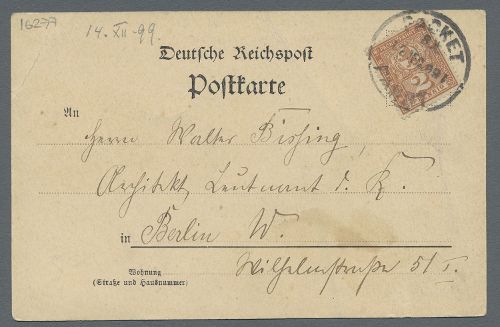 16277
14. XII - 99.
Deutsche Reichspost
Postkarte
PACKET
2
An
Herrn Walter Bissing,
Architekt Leutnant d. R.
in Berlin W.
Wohnung
(Straße und Hausnummer)
Wilhelmstraße 51 I.